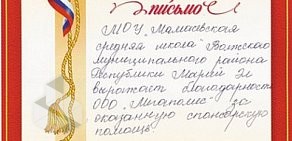 письмо
МОУ "Мамасевская
средняя школа" Волжского
муниципального района
Республики Марий Эл
выражает благодарность
ООО "Мегаполис" за
оказанную спонсорскую
помощь